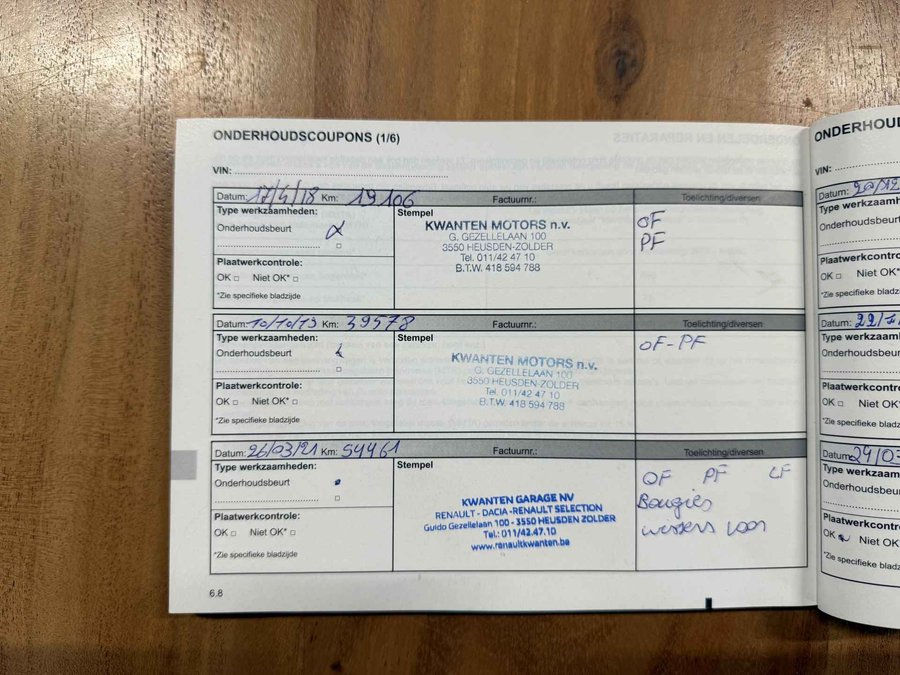 ONDERHOUDSCOUPONS (1/6)
VIN:
Datum: 17/4/18 Km: 19106 Factuurnr.: Toelichting/diversen
Type werkzaamheden: Stempel
Onderhoudsbeurt
KWANTEN MOTORS n.v.
G. GEZELLELAAN 100
3550 HEUSDEN-ZOLDER
Tel. 011/42 47 10
B.T.W. 418 594 788
OF
PF
Plaatwerkcontrole:
OK Niet OK*
*Zie specifieke bladzijde
Datum: 10/10/19 Km: 39578 Factuurnr.: Toelichting/diversen
Type werkzaamheden: Stempel
Onderhoudsbeurt
KWANTEN MOTORS n.v.
G. GEZELLELAAN 100
3550 HEUSDEN-ZOLDER
Tel. 011/42 47 10
B.T.W. 418 594 788
OF-PF
Plaatwerkcontrole:
OK Niet OK*
*Zie specifieke bladzijde
Datum: 26/03/21 Km: 54461 Factuurnr.: Toelichting/diversen
Type werkzaamheden: Stempel
Onderhoudsbeurt
KWANTEN GARAGE NV
RENAULT - DACIA - RENAULT SELECTION
Guido Gezellelaan 100 - 3550 HEUSDEN ZOLDER
Tel.: 011/42.47.10
www.renaultkwanten.be
OF PF LF
Bougies
wissers voor
Plaatwerkcontrole:
OK Niet OK*
*Zie specifieke bladzijde
6.8
VIN:
Datum:
Type werkzaamh
Onderhoudsbeurt
Plaatwerkcontrole
OK Niet OK*
*Zie specifieke bladzi
Datum:
Type werkzaam
Onderhoudsbeurt
Plaatwerkcontrol
OK Niet OK
*Zie specifieke blad
Datum:
Type werkzaa
Onderhoudsbeu
Plaatwerkcontr
OK Niet OK
*Zie specifieke bla